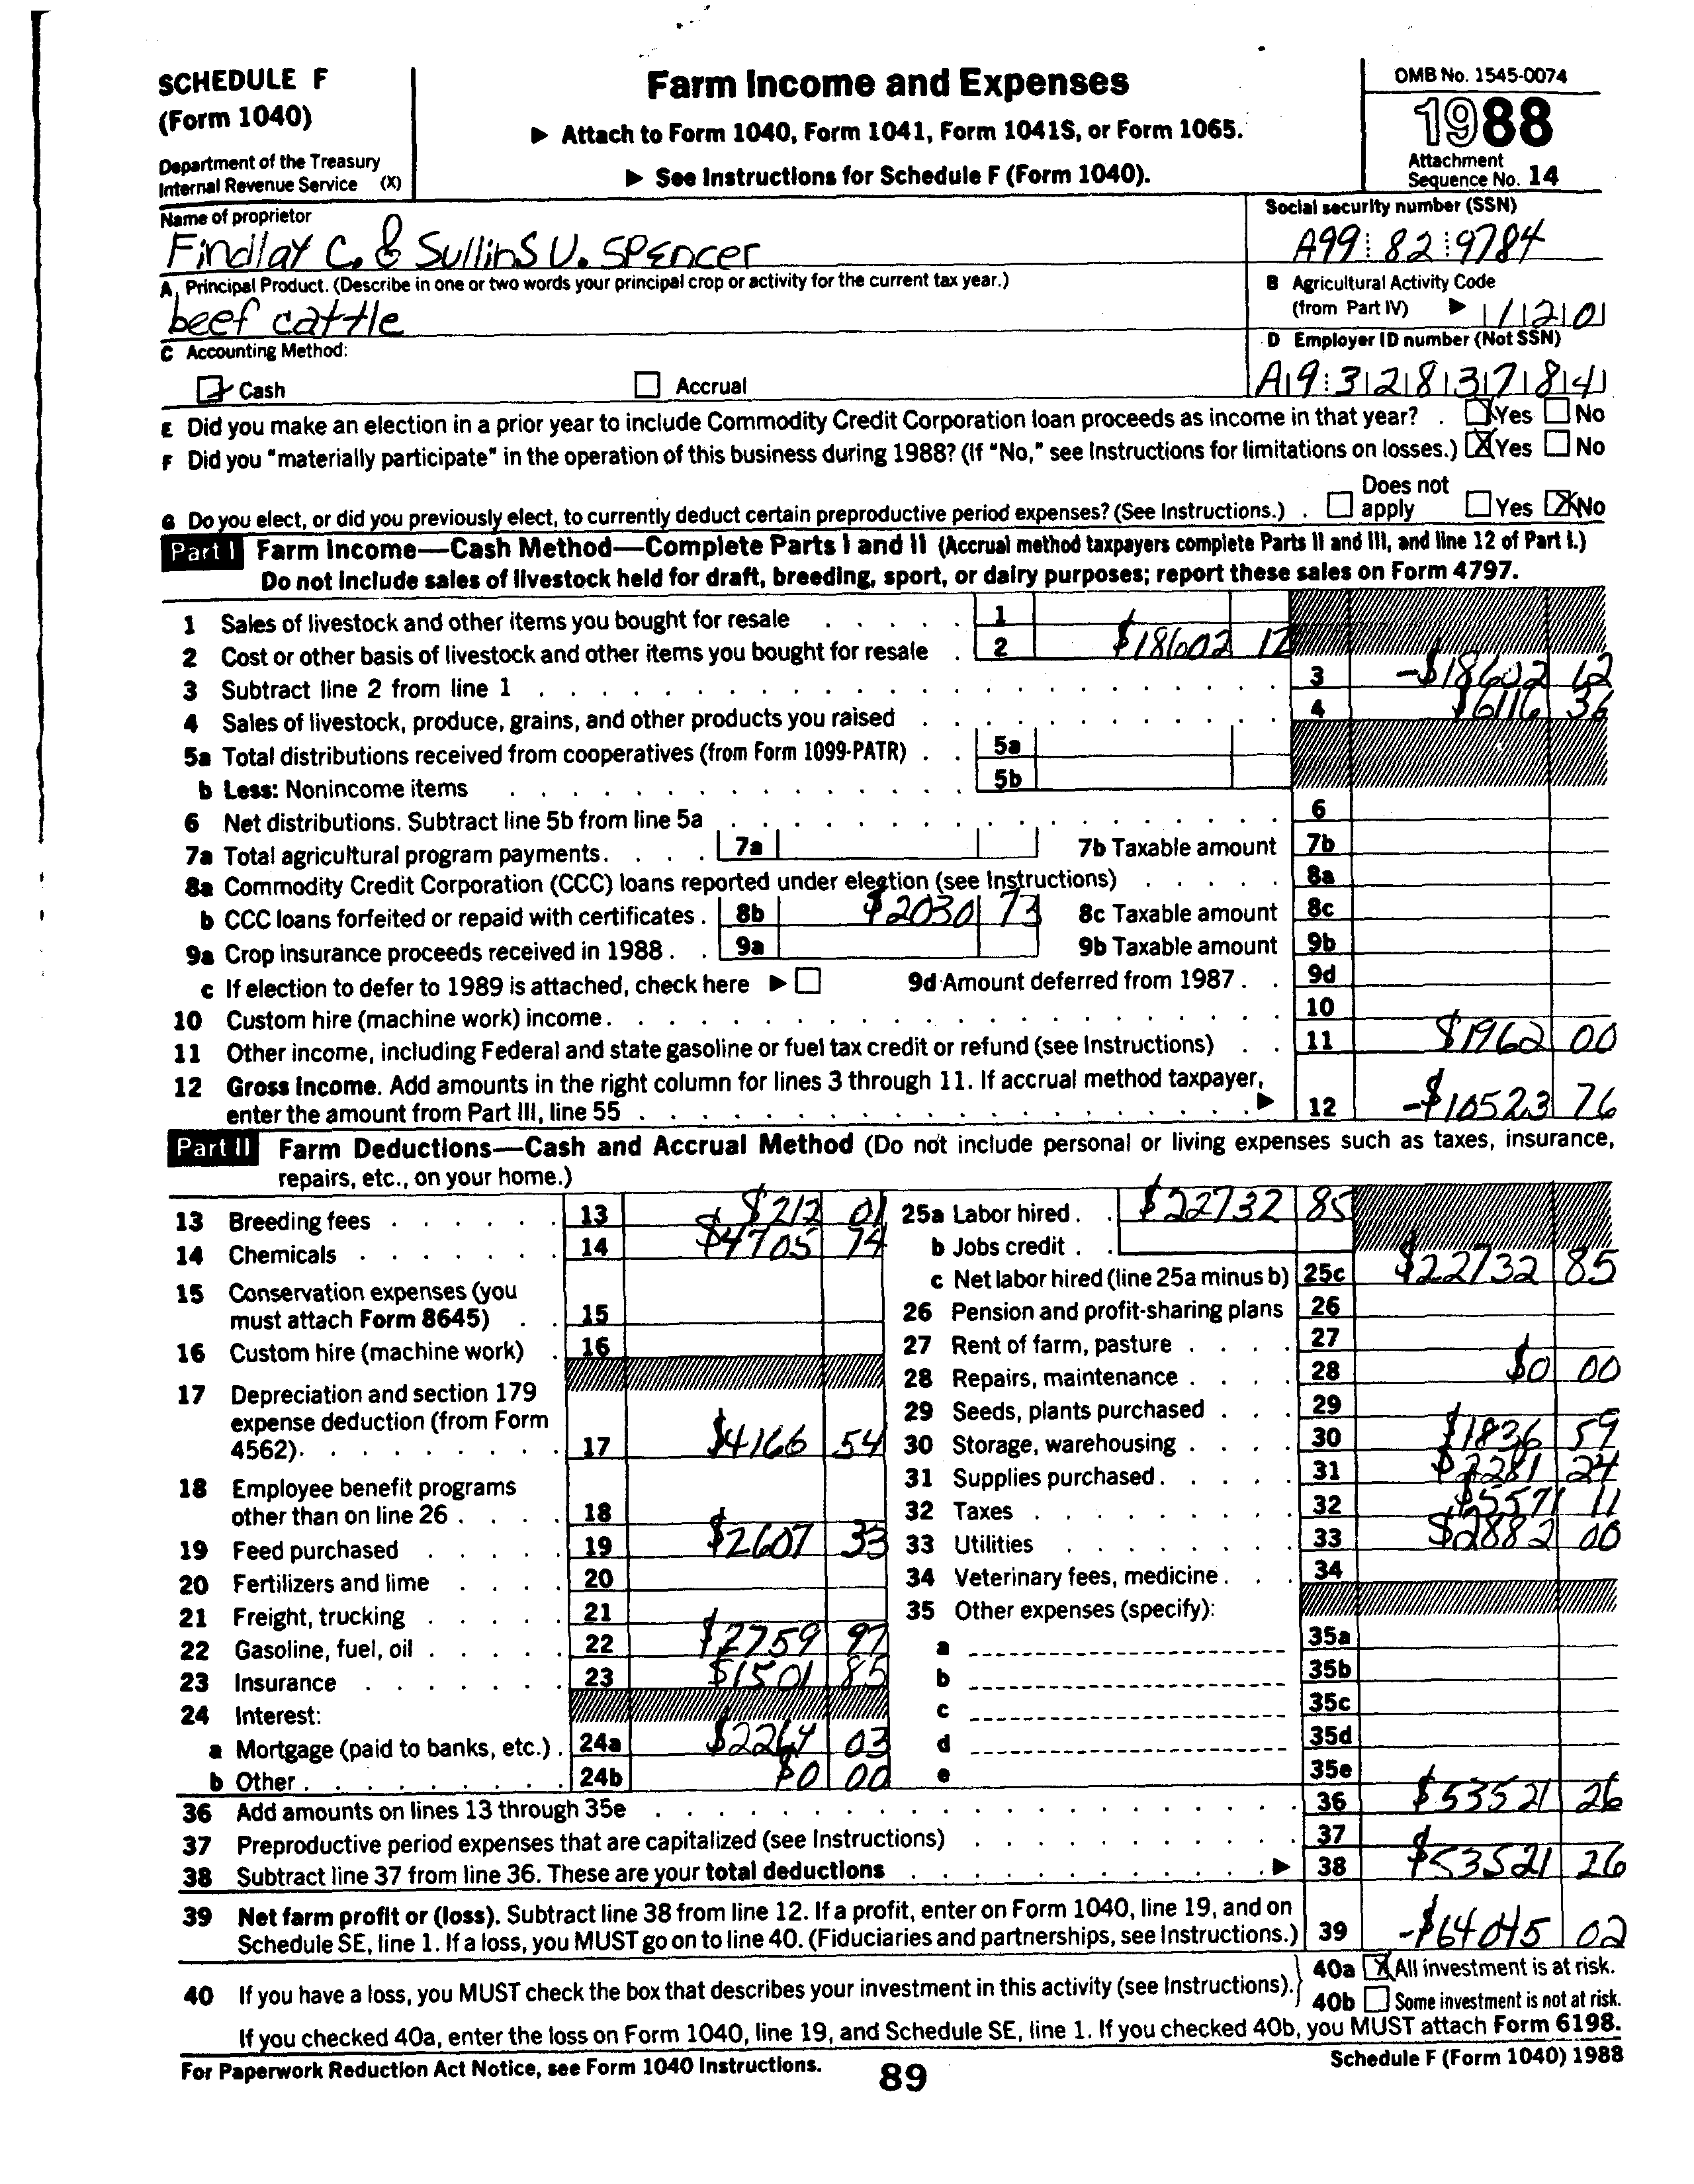 SCHEDULE F
(Form 1040)
Department of the Treasury
Internal Revenue Service (X)
Farm Income and Expenses
▶ Attach to Form 1040, Form 1041, Form 1041S, or Form 1065.
▶ See Instructions for Schedule F (Form 1040).
OMB No. 1545-0074
1988
Attachment
Sequence No. 14
Name of proprietor
Findlay C. & Sullins U. Spencer
Social security number (SSN)
A99 82 9784
A Principal Product. (Describe in one or two words your principal crop or activity for the current tax year.)
beef cattle
B Agricultural Activity Code
(from Part IV) ▶ 1 1 2 0
C Accounting Method:
D Employer ID number (Not SSN)
Cash Accrual
A9 3283784
E Did you make an election in a prior year to include Commodity Credit Corporation loan proceeds as income in that year? . Yes No
F Did you "materially participate" in the operation of this business during 1988? (If "No," see Instructions for limitations on losses.) X Yes No
G Do you elect, or did you previously elect, to currently deduct certain preproductive period expenses? (See Instructions.) . Does not apply Yes X No
Part I Farm Income—Cash Method—Complete Parts I and II (Accrual method taxpayers complete Parts II and III, and line 12 of Part I.)
Do not include sales of livestock held for draft, breeding, sport, or dairy purposes; report these sales on Form 4797.
1 Sales of livestock and other items you bought for resale 1
2 Cost or other basis of livestock and other items you bought for resale 2 $18602 12
3 Subtract line 2 from line 1 3 -$18602 12
4 Sales of livestock, produce, grains, and other products you raised 4 $6116 36
5a Total distributions received from cooperatives (from Form 1099-PATR) 5a
b Less: Nonincome items 5b
6 Net distributions. Subtract line 5b from line 5a 6
7a Total agricultural program payments. 7a 7b Taxable amount 7b
8a Commodity Credit Corporation (CCC) loans reported under election (see Instructions) 8a
b CCC loans forfeited or repaid with certificates . 8b $2030 73 8c Taxable amount 8c
9a Crop insurance proceeds received in 1988 . 9a 9b Taxable amount 9b
c If election to defer to 1989 is attached, check here ▶ 9d Amount deferred from 1987 . 9d
10 Custom hire (machine work) income. 10
11 Other income, including Federal and state gasoline or fuel tax credit or refund (see Instructions) 11 $1962 00
12 Gross Income. Add amounts in the right column for lines 3 through 11. If accrual method taxpayer,
enter the amount from Part III, line 55 ▶ 12 -$10523 76
Part II Farm Deductions—Cash and Accrual Method (Do not include personal or living expenses such as taxes, insurance,
repairs, etc., on your home.)
13 Breeding fees 13 $212 01
14 Chemicals 14 $4705 74
15 Conservation expenses (you
must attach Form 8645) 15
16 Custom hire (machine work) 16
17 Depreciation and section 179
expense deduction (from Form
4562). 17 $4166 54
18 Employee benefit programs
other than on line 26 18
19 Feed purchased 19 $2607 33
20 Fertilizers and lime 20
21 Freight, trucking 21
22 Gasoline, fuel, oil 22 $2759 97
23 Insurance 23 $1501 85
24 Interest:
a Mortgage (paid to banks, etc.) 24a $2264 03
b Other 24b $0 00
25a Labor hired $22732 85
b Jobs credit
c Net labor hired (line 25a minus b) 25c $22732 85
26 Pension and profit-sharing plans 26
27 Rent of farm, pasture 27
28 Repairs, maintenance 28 $0 00
29 Seeds, plants purchased 29
30 Storage, warehousing 30 $1836 59
31 Supplies purchased 31 $2281 24
32 Taxes 32 $5571 11
33 Utilities 33 $2882 00
34 Veterinary fees, medicine 34
35 Other expenses (specify):
a 35a
b 35b
c 35c
d 35d
e 35e
36 Add amounts on lines 13 through 35e 36 $53521 26
37 Preproductive period expenses that are capitalized (see Instructions) 37
38 Subtract line 37 from line 36. These are your total deductions ▶ 38 $53521 26
39 Net farm profit or (loss). Subtract line 38 from line 12. If a profit, enter on Form 1040, line 19, and on
Schedule SE, line 1. If a loss, you MUST go on to line 40. (Fiduciaries and partnerships, see Instructions.) 39 -$64045 02
40 If you have a loss, you MUST check the box that describes your investment in this activity (see Instructions).
40a X All investment is at risk.
40b Some investment is not at risk.
If you checked 40a, enter the loss on Form 1040, line 19, and Schedule SE, line 1. If you checked 40b, you MUST attach Form 6198.
For Paperwork Reduction Act Notice, see Form 1040 Instructions.
89
Schedule F (Form 1040) 1988